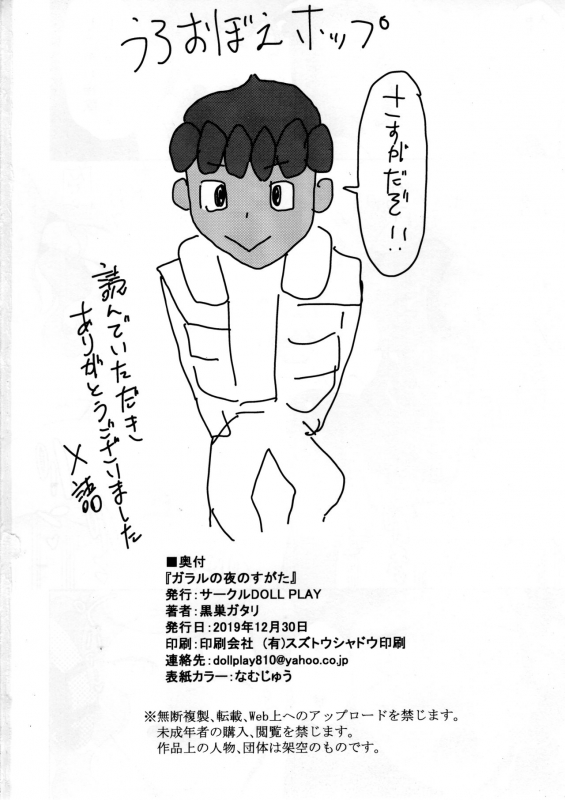 うろおぼえホップ
さすがだぞ!!
読んでいただき
ありがとうございました
■奥付
『ガラルの夜のすがた』
発行：サークルDOLL PLAY
著者：黒巣ガタリ
発行日：2019年12月30日
印刷：印刷会社 （有）スズトウシャドウ印刷
連絡先：dollplay810@yahoo.co.jp
表紙カラー：なむじゅう
※無断複製、転載、Web上へのアップロードを禁じます。
未成年者の購入、閲覧を禁じます。
作品上の人物、団体は架空のものです。